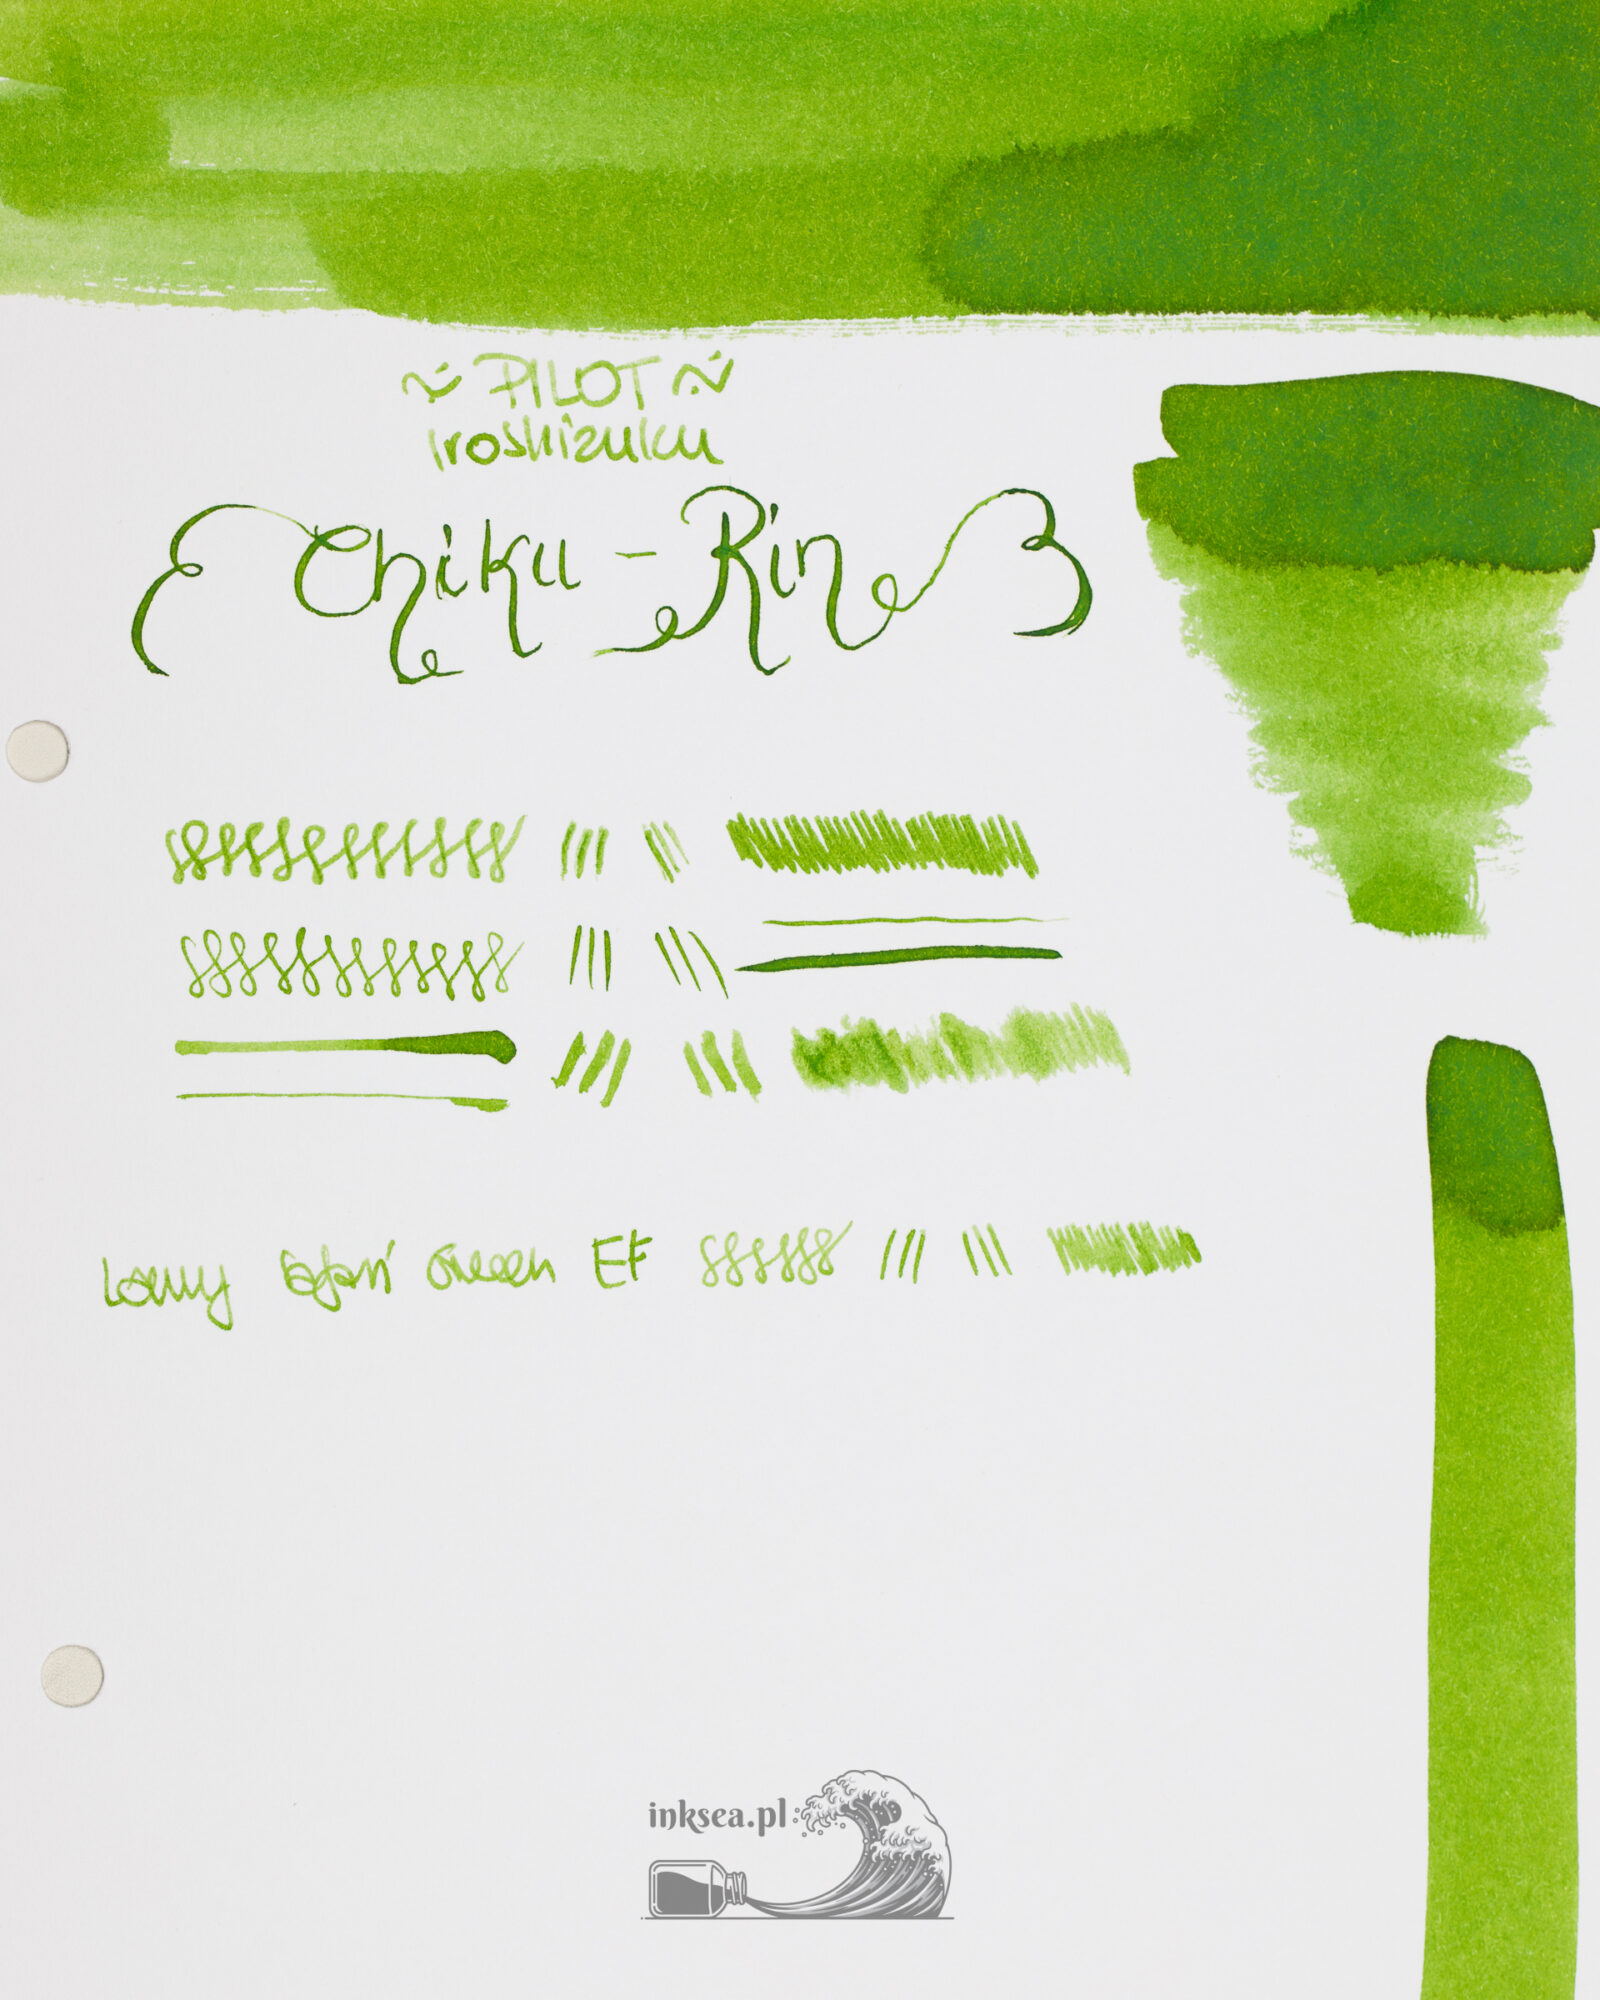 ~ PILOT ~
Iroshizuku
Chiku-Rin
Lamy Safari Green EF
inksea.pl